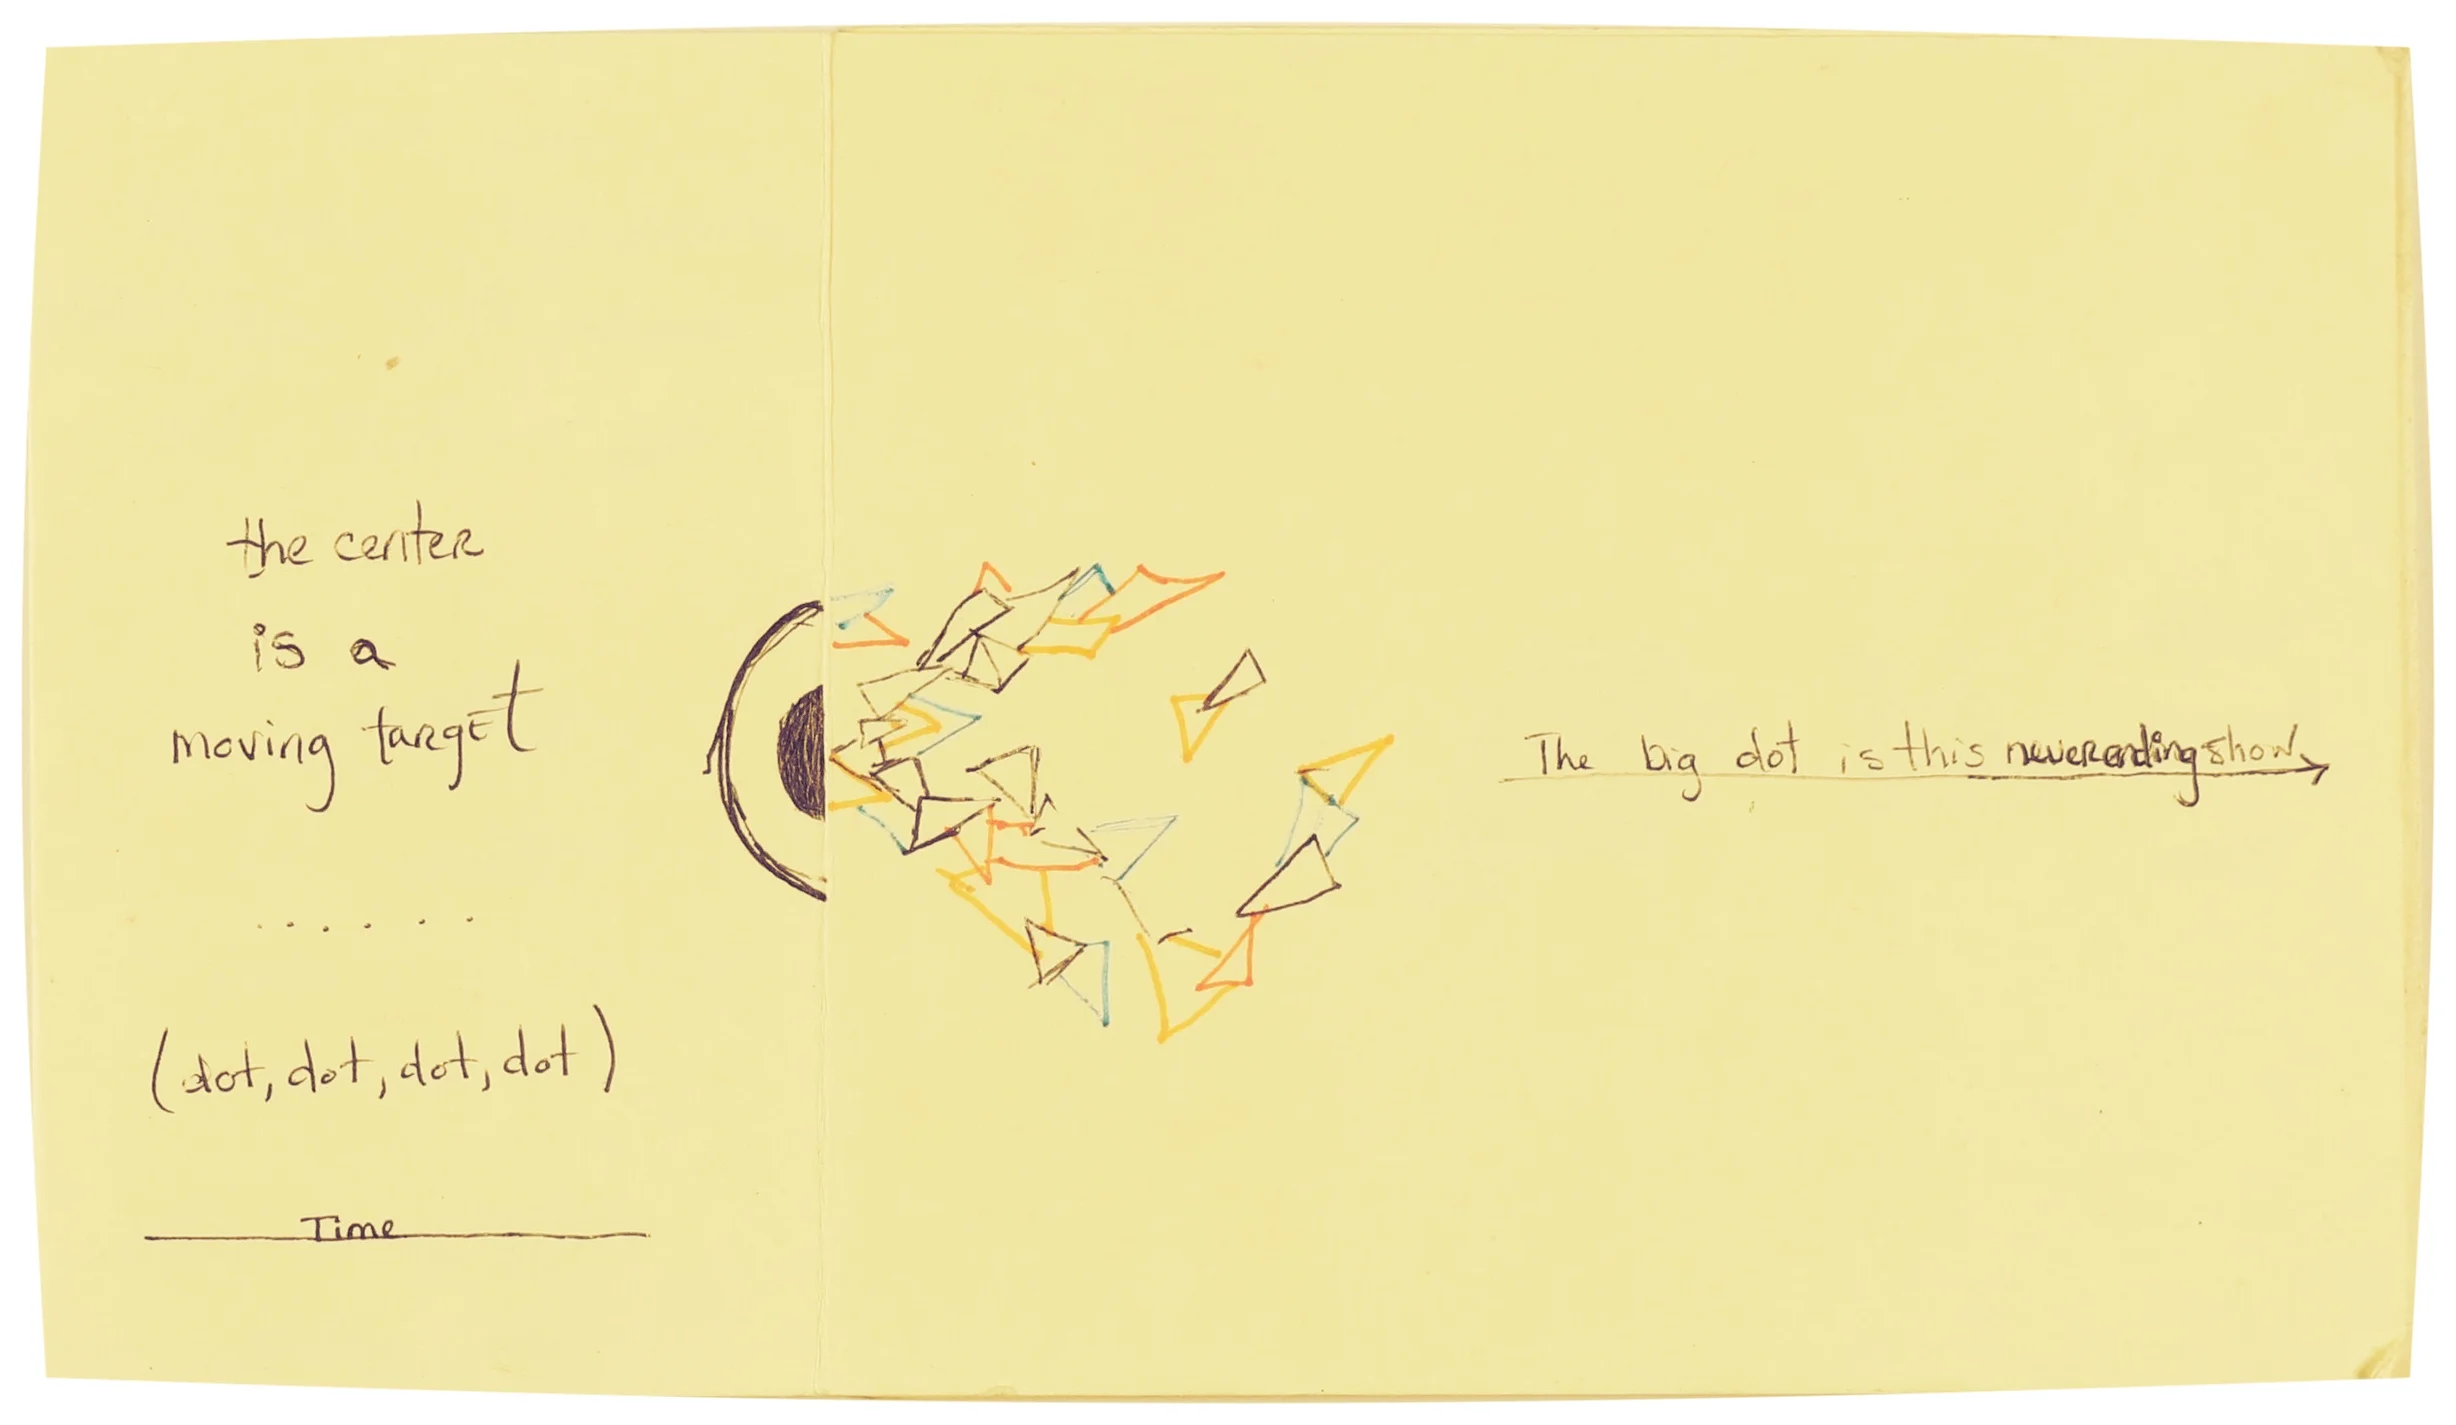 the center
is a
moving target
. . . . . .
(dot, dot, dot, dot)
Time
The big dot is this neverendingshow